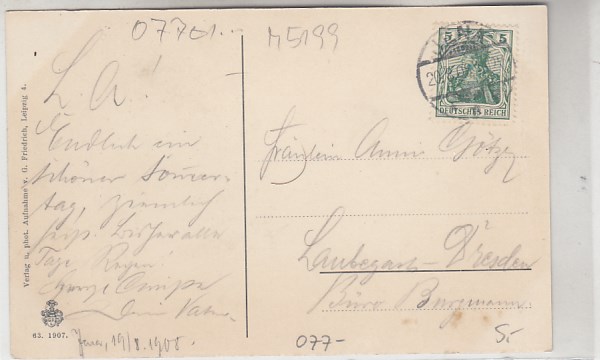 07701...
M5199
5 5
DEUTSCHES REICH
L. A.!
Endlich ein
schöner Sommer-
tag, ziemlich
Bisher alle
Tage Regen!
Dein Vater.
Jena, 19/8. 1908.
Fräulein Anni Götze
Laubegast-Dresden
Büro Bergmann.
077-
5.-
Verlag u. phot. Aufnahme v. G. Friedrich, Leipzig 4.
63. 1907.